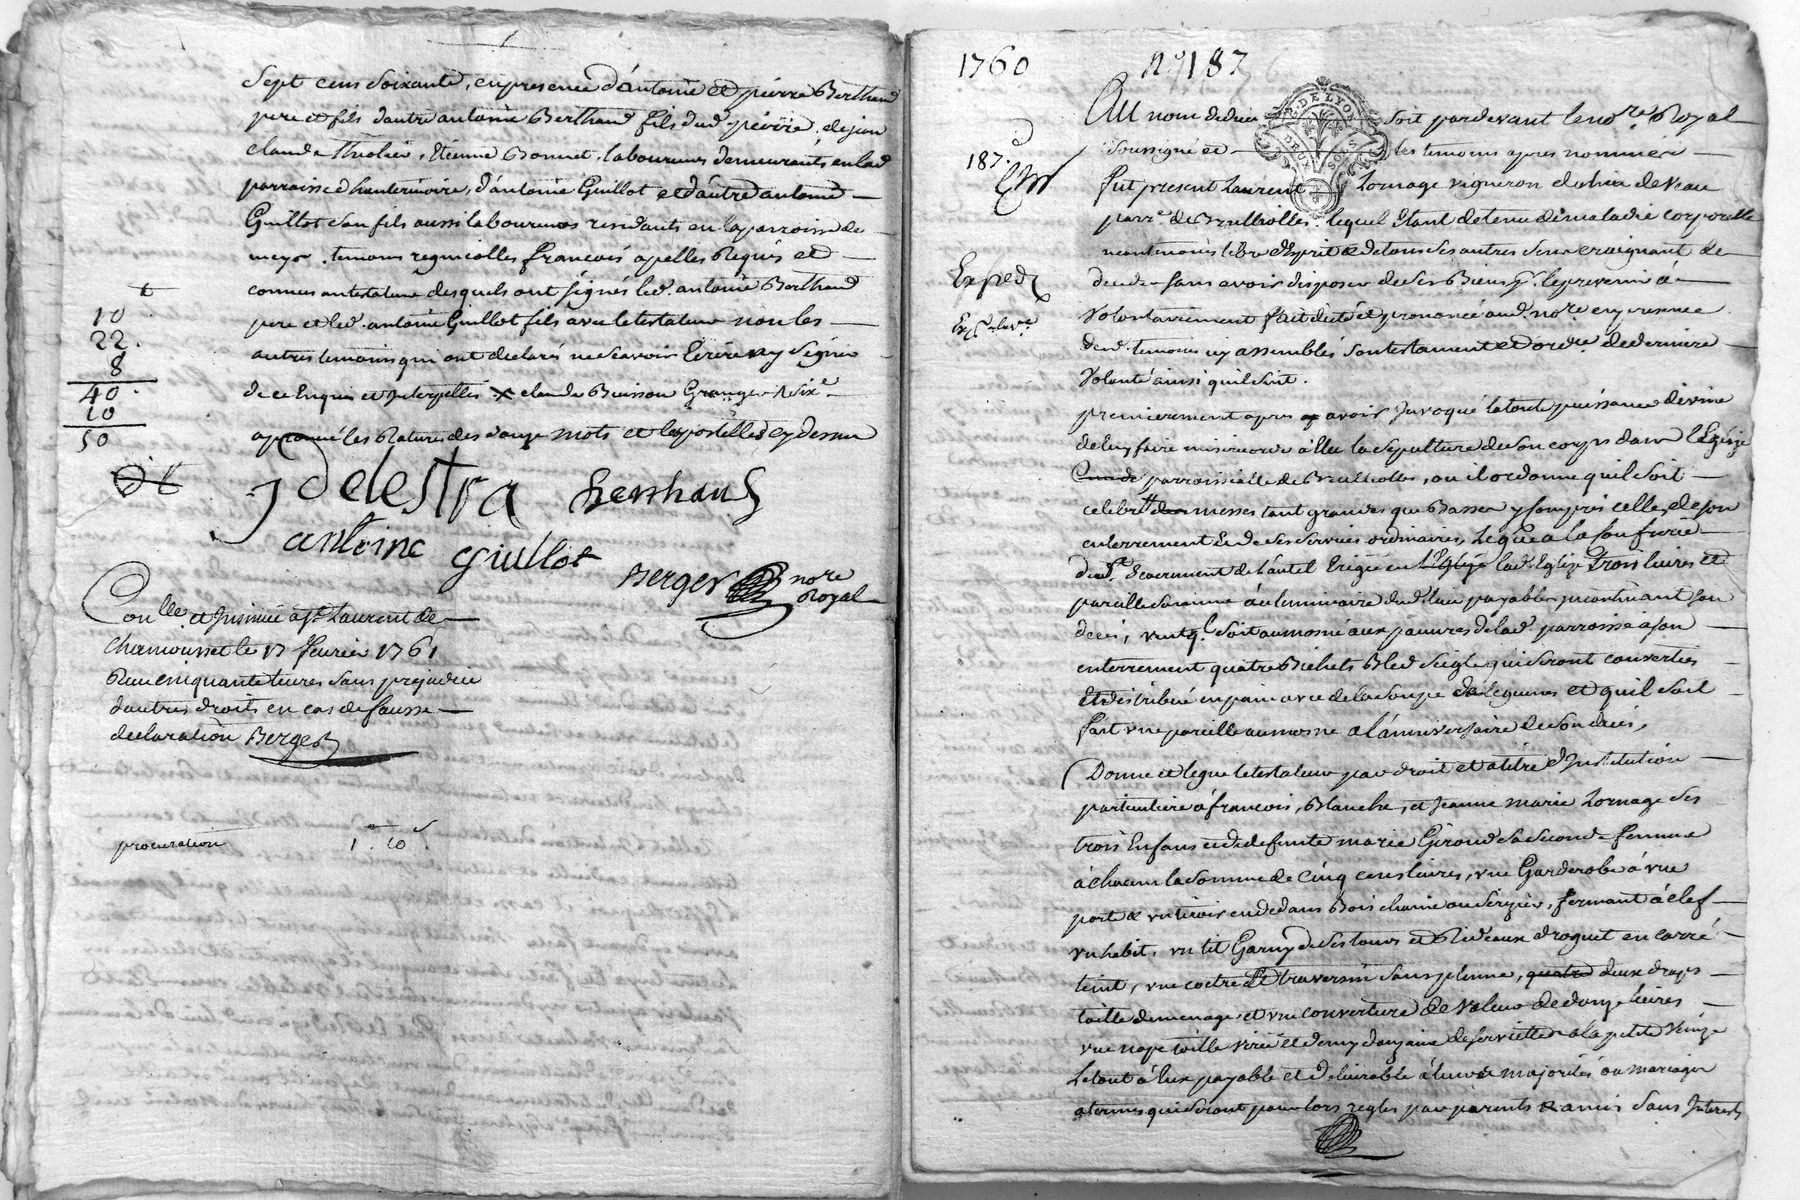 sept cens soixante, en presence d'antoine et pierre Berthaud
pere et fils d'autre antoine Berthaud fils dud. pierre, de jean
claude Thiolier, Etienne Bonnet, laboureurs demeurants en lad.
parroisse d'hauterivoire, d'antoine Guillot et d'autre antoine
Guillot son fils aussi laboureurs residants en la parroisse de
meys. temoins regnicolles francois apellés Requis et
connus au testateur desquels ont signés led. antoine Berthaud
pere et led. antoine Guillot fils avec le testateur non les
autres temoins qui ont declarés ne scavoir Ecrire ny Signer
de ce Enquis et Interpellés x claude Buisson Granger
aprouvé les Ratures des douze mots et l'apostille cy dessus
10
22.
8
40.
10
50
J delestra berthaud
antoine guillot
Berger nore Royal
Conlle. et Insinué a St. Laurent de
chamousset le 17 fevrier 1761
Recu cinquante livres sans prejudice
d'autres droits en cas de fausse
declaration Berger
procuration 1. 10 s
1760 No. 187
187.
Exped.
Au nom de dieu soit pardevant le nore. Royal
soussigné et les temoins apres nommes
fut present Laurent Lornage vigneron du lieu de Veau
parr.e de Brullioles, lequel Etant detenu de maladie corporelle
neantmoins libre d'Esprit & de tous ses autres sens craignant de
deceder sans avoir disposer de ses Biens pr. le prevenir a
Volontairement fait dicté et prononcé aud. nore en presence
desd. temoins icy assemblés son testament et ordre. de derniere
Volonté ainsi quil suit.
premierement apres avoir Invoqué la toute puissance divine
de luy faire misericorde a Elu la sepulture de son corps dans l'Eglize
parroissialle de Brullioles, ou il ordonne quil soit
celebré messes tant grandes que Basses y compris celles de son
enterrement & de ses services ordinaires, Legue a la confrerie
du St. Sacrement de l'autel Erigée en lad. Eglize trois livres et
pareille somme au luminaire dud. lieu payable incontinant son
deces, veut q.l soit aumosné aux pauvres de lad. parroisse a son
enterrement quatre Bichets Bled Seigle qui seront convertis
et distribué en pain avec de la soupe de legumes et quil soit
fait une pareille aumosne a l'anniversaire de son deces,
Donne et legue le testateur par droit et a titre d'Institution
particuliere a francois, Blanche, et Jeanne marie Lornage ses
trois Enfans et de defunte marie Giroud sa seconde femme
à chacun la somme de Cinq cens livres, une Garderobe à une
porte & un tiroir en dedans Bois chaine ou serizier, fermant à clef
un habit, un lit Garny de ses tours et Rideaux droguet en carré
teint, une coetre et traversin sans plume, deux draps
toille de menage, et une couverture de valeur de douze livres
une nape toille virée et demy douzaine de serviettes a la petite Venize
Le tout à Eux payable et delivrable à leurs majorités ou mariages
a termes qui seront pour lors regles par parents & amis sans Interest